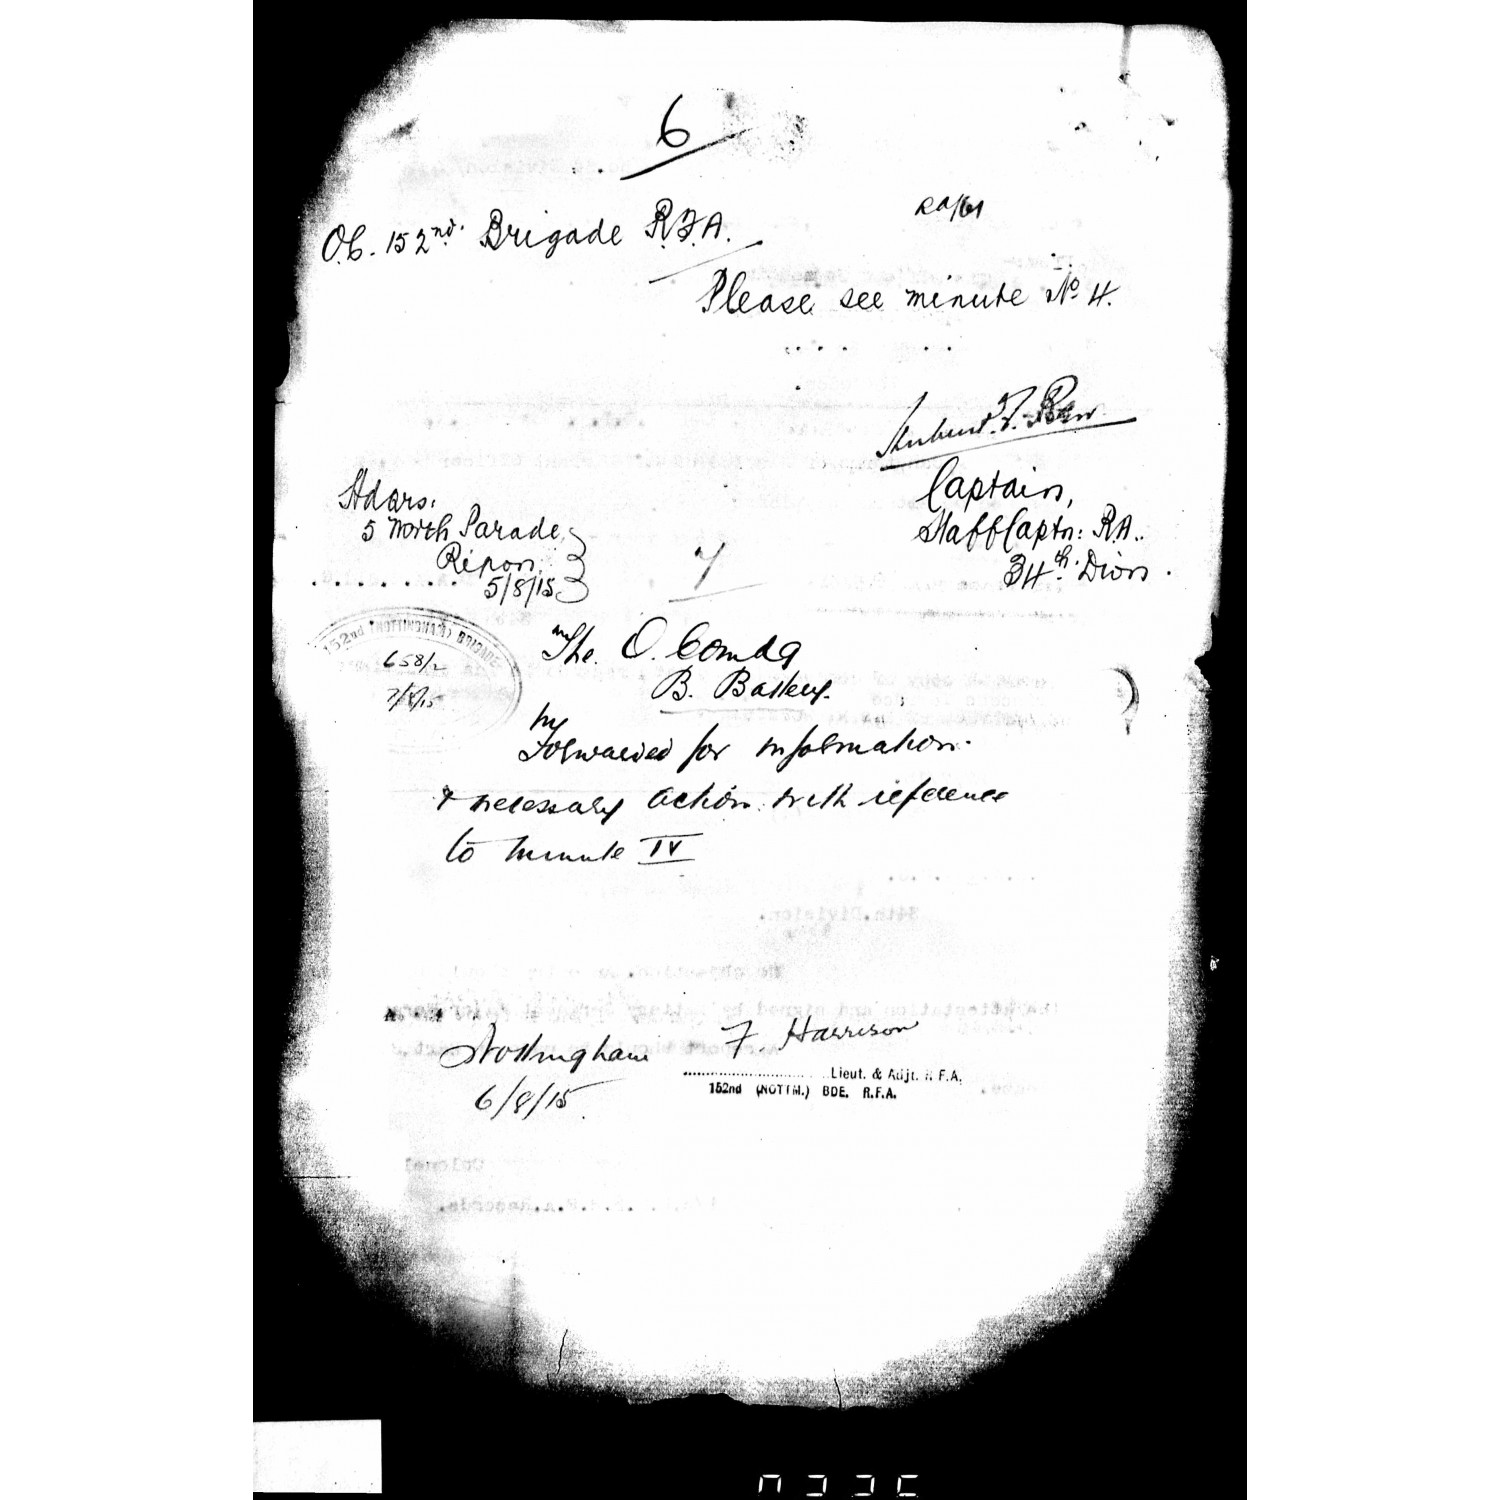 6
RA/61
O.C. 152nd. Brigade R.F.A.
Please see minute No 4.
Captain,
Staff Captn: R.A.
34th. Divn.
Hdqrs:
5 North Parade,
Ripon.
5/8/15
7
152nd (NOTTINGHAM) BRIGADE
658/2
7/8/15
The O. Comdg
B. Battery.
Forwarded for information
& necessary action with reference
to Minute IV
Nottingham
6/8/15
F. Harrison
Lieut. & Adjt. R.F.A.
152nd (NOTTM.) BDE. R.F.A.
34th.Division.
Colonel